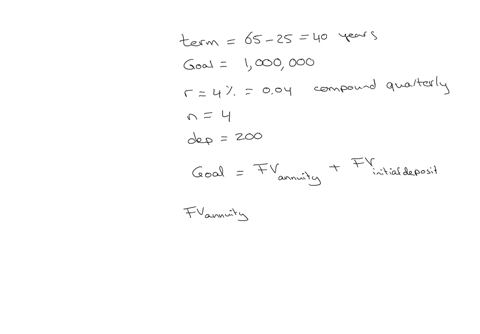 term = 65 - 25 = 40 years
Goal = 1,000,000
r = 4% = 0.04 compound quarterly
n = 4
dep = 200
Goal = FV annuity + FV initial deposit
FV annuity